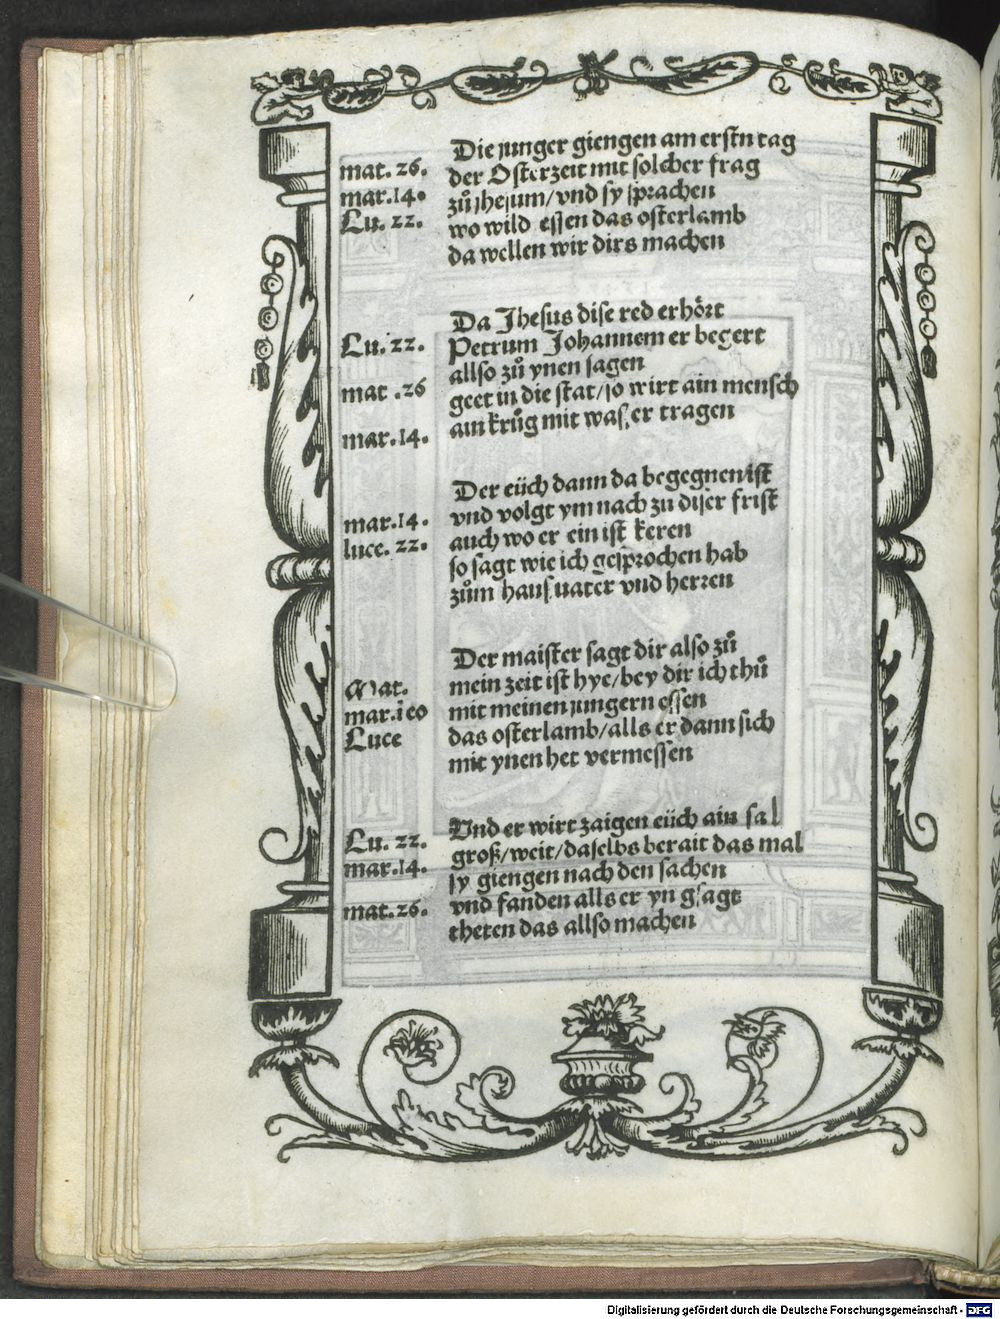 Die junger giengen am erstn tag
mat. 26. der Osterzeit mit solcher frag
mar. 14. zů jhesum/ vnd sy sprachen
Lu. 22. wo wild essen das osterlamb
da wellen wir dirs machen
Da Jhesus dise red erhört
Lu. 22. Petrum Johannem er begert
allso zů ynen sagen
mat. 26 geet in die stat/ so wirt ain mensch
ain krůg mit wasser tragen
mar. 14.
Der eüch dann da begegnen ist
mar. 14. vnd volgt ym nach zu diser frist
luce. 22. auch wo er ein ist keren
so sagt wie ich gesprochen hab
zům haus vater vnd herren
Der maister sagt dir also zů
Mat. mein zeit ist hye/ bey dir ich thů
mar. i eo mit meinen jungern essen
Luce das osterlamb/ alls er dann sich
mit ynen het vermessen
Vnd er wirt zaigen eüch ain sal
Lu. 22. groß/ weit/ daselbs berait das mal
mar. 14. sy giengen nach den sachen
mat. 26. vnd fanden alls er yn gsagt
theten das allso machen
Digitalisierung gefördert durch die Deutsche Forschungsgemeinschaft - DFG